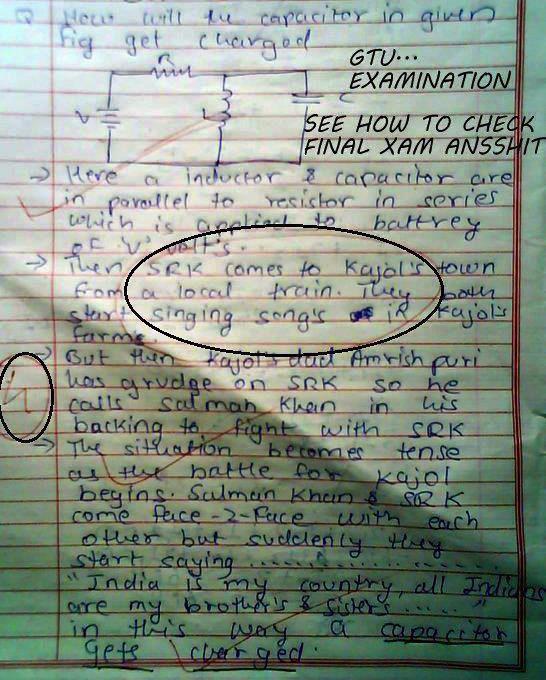 Q How will the capacitor in given
fig get charged
R
GTU...
EXAMINATION
V
L
C
SEE HOW TO CHECK
FINAL XAM ANSSHIT
→ Here a inductor & capacitor are
in parallel to resistor in series
which is applied to battrey
of 'V' volt's.
→ Then SRK comes to Kajol's town
from a local train. They both
start singing song's in Kajol's
farms.
→ But then Kajol's dad Amrish puri
has grudge on SRK so he
calls Salman Khan in his
backing to fight with SRK
→ The situation becomes tense
as the battle for Kajol
begins. Salman Khan & SRK
come face-2-face with each
other but suddenly they
start saying ..................
"India is my country, all Indians
are my brother's & sister's ..... "
in this way a capacitor
gets charged.